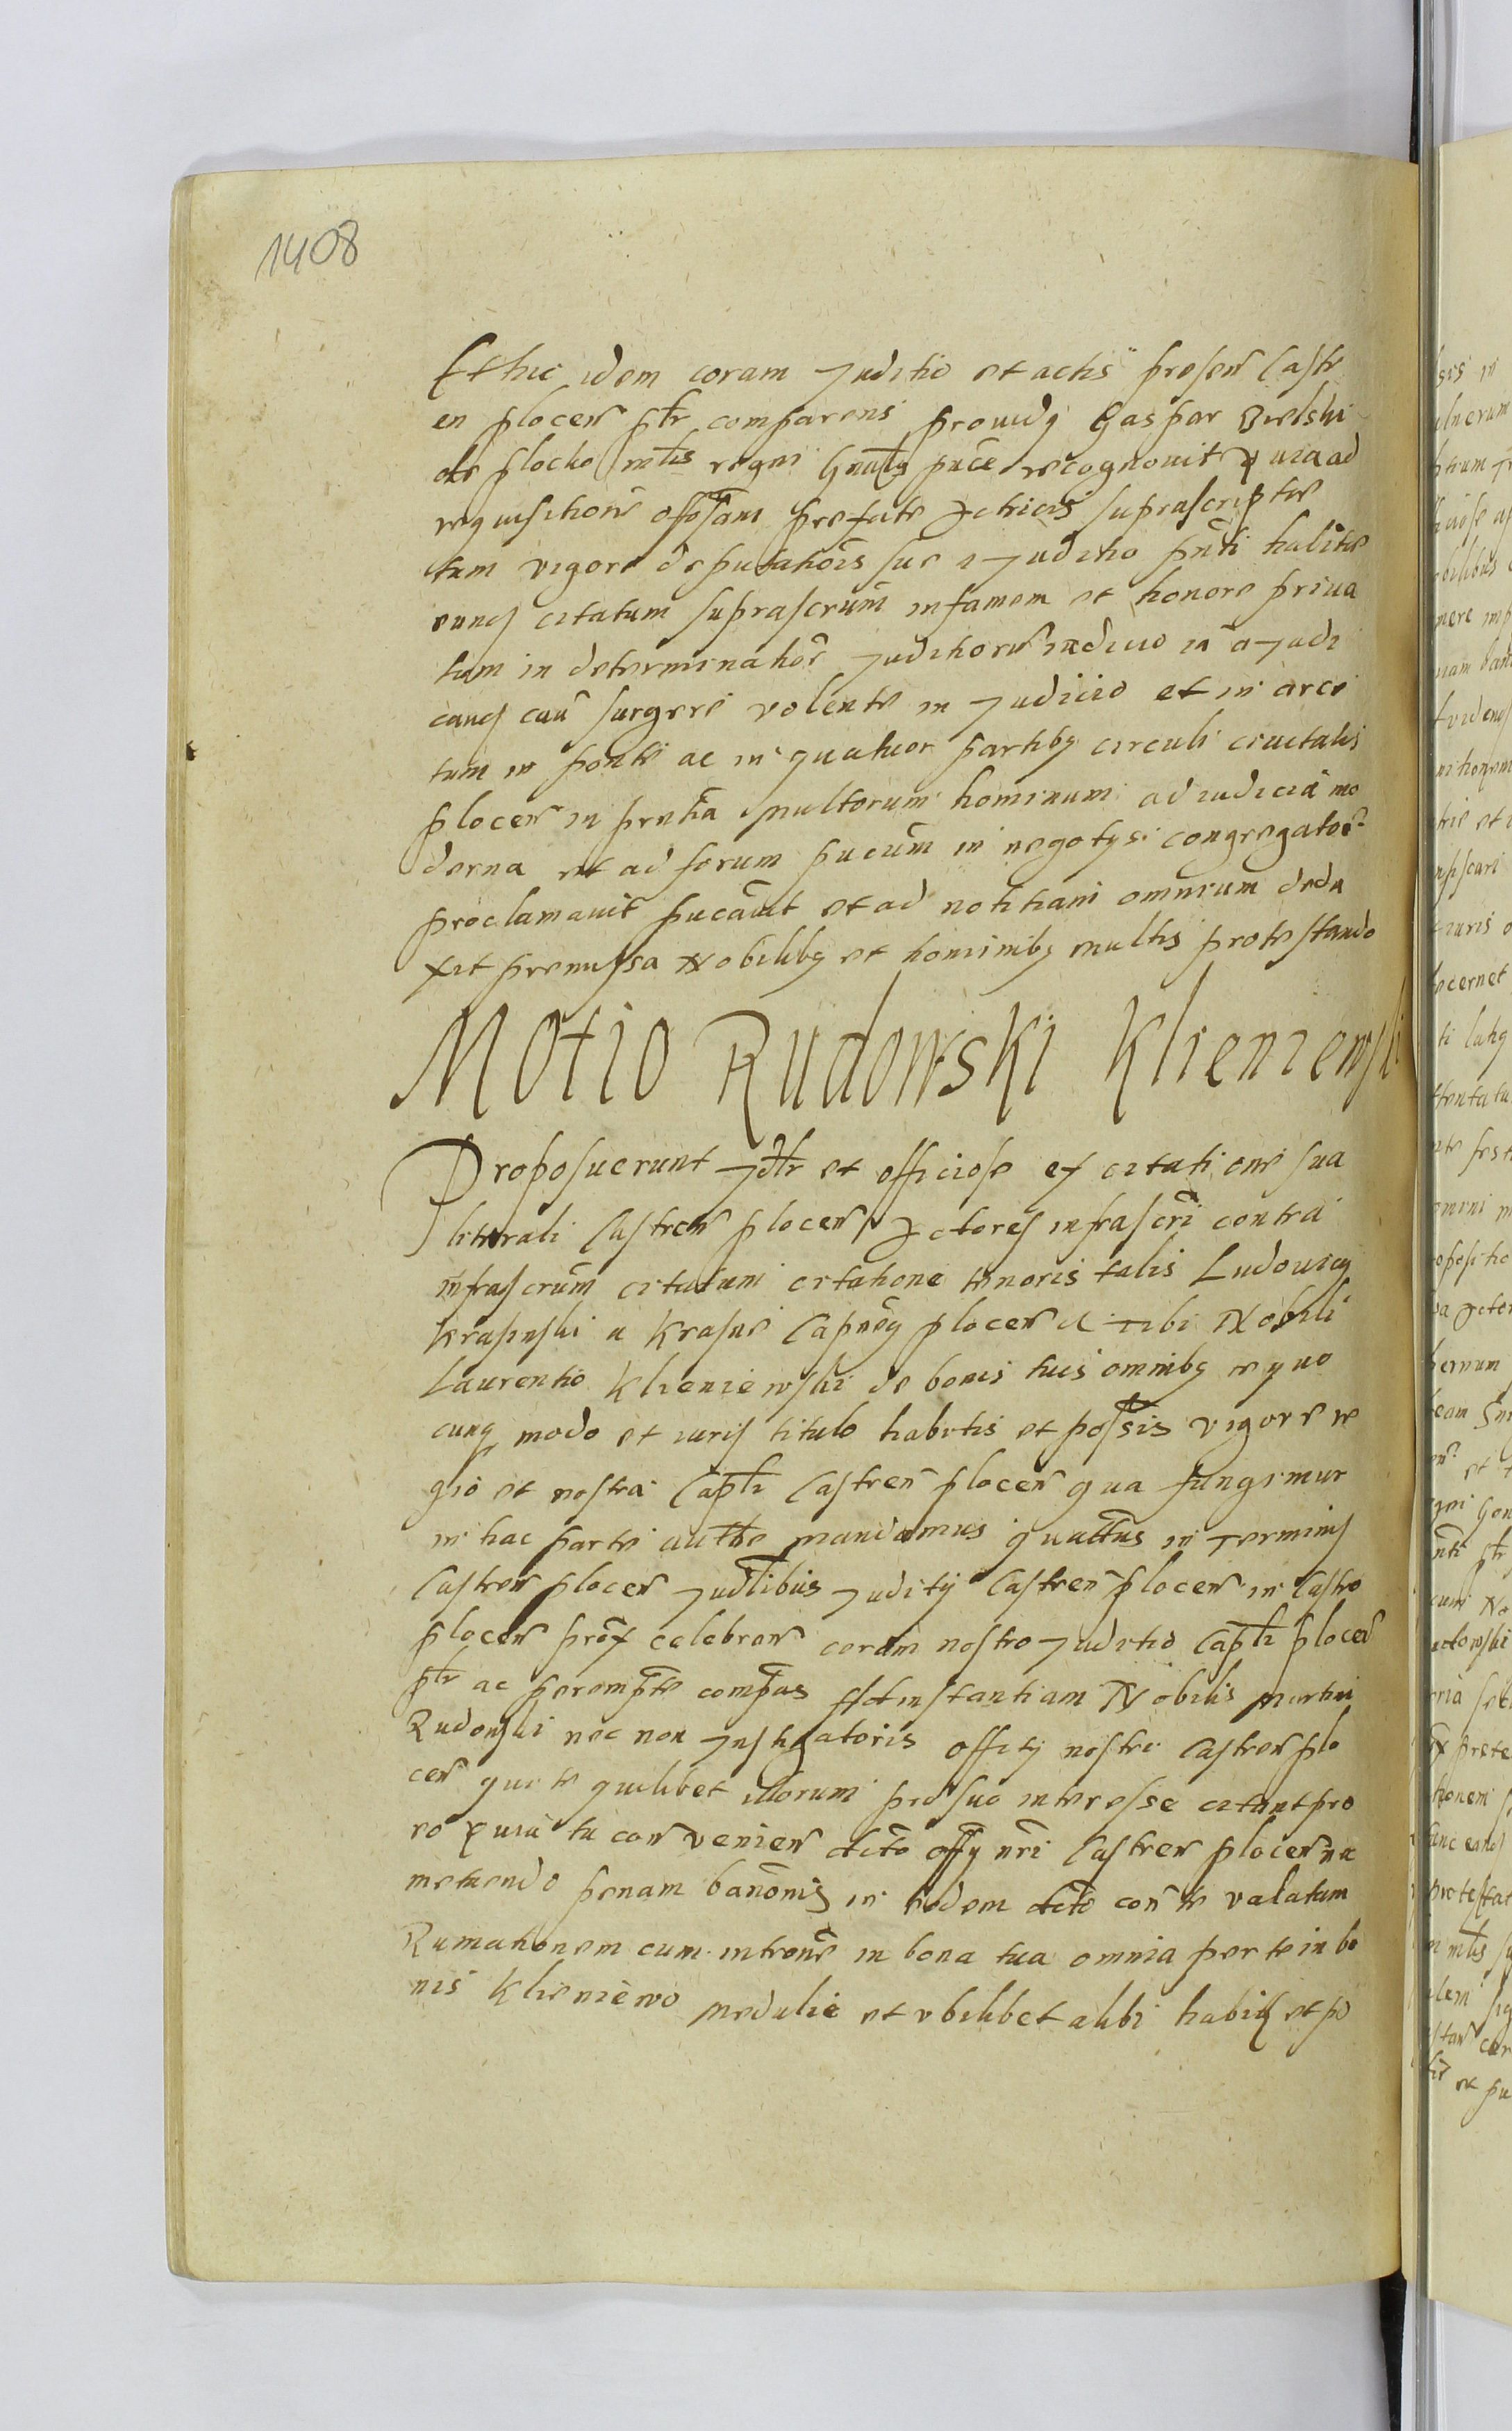 1408
Ethic idem coram Juditio et actis presen Castr
en plocen ptr comparens prouidus Gaspar Bielski
de plocko mtis regni Gnalis puce recognouit Quia ad
requisitione offosam prefate Actricis suprascripte
tum vigore deputationis sue a Juditio pnti habite
eundem citatum suprascrum infamem et honore priua
tum in determinatioe Juditioru in a Judi
cands cau surgere volente in Judicio et in arce
tum in ponte ac in quatuor partibus circuli ciuitatis
plocen in prntia multorum hominum ad iudicia mo
derna et ad forum pucum in negotys congregator
proclamauit pucauit et ad notitiam omnium dedu
xit premissa Nobilibus et hominibus multis protestando
Motio Rudowski Klieniewski
Proposuerunt Jdtr et officiose ex citatione sua
literali Castren plocen Actores infrascri contra
infrascrum citatum citatione tenoris talis Ludouicus
Krasinski a Krasne Capneus plocen &c Tibi Nobili
Laurentio Klieniewski de bonis tuis omnibus equo
cunq modo et iuris titulo habitis et possis vigore re
gio et nostra Captli Castren plocen qua fungimur
in hac parte autte mandamus quattnus in Terminis
Castren plocen Judlibus Juditij Castren plocen in Castro
plocen prox celebran coram nostro Juditio Captli plocen
ptr ac perempte compas Ad instantiam Nobilis Martini
Rudowski nec non Instigatoris officij nostri Castren plo
cen qui te quilibet illorum pro suo interesse citant pro
eo Quia tu con venien dcto offy nri Castren plocen nec
metuendo penam bannonis in eodem dcto con te valatum
Rumationem cum introne in bona tua omnia per te in bo
nis Klieniewo medulie et vbilibet alibi habiq et po